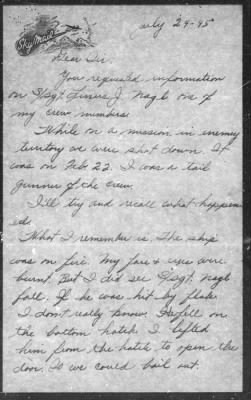 Sky Mail
July 29-45
Dear Sir:
Your requested information
on S/Sgt. J. Nagl one of
my crew members.
While on a mission in enemy
territory we were shot down. It
was on Feb 22. I was a tail
gunner of the crew.
I'll try and recall what happen
ed.
What I remember is. The ship
was on fire. My face & eyes were
burnt. But I did see S/Sgt. Nagl
fall. If he was hit by flak
I don't really know. He fell on
the bottom hatch. I lifted
him from the hatch to open the
door. So we could bail out.